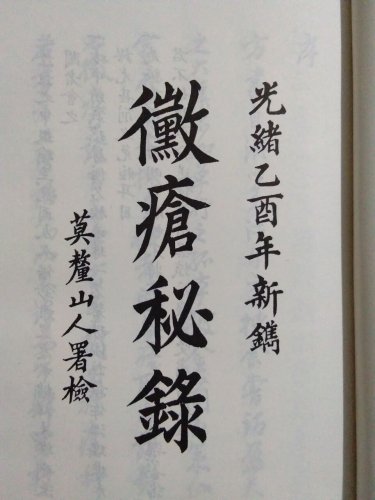 光緒乙酉年新鐫
黴瘡秘錄
莫釐山人署檢